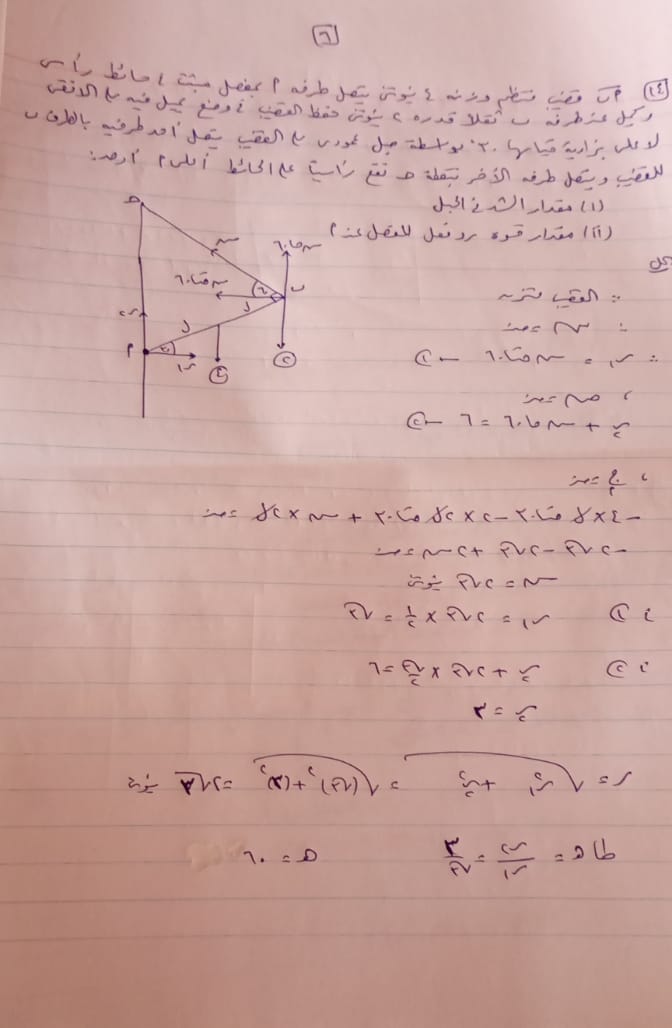 ٦
(١٤) أ ب قضيب منتظم وزنه ٤ نيوتن يتصل طرفه أ بمفصل مثبت في حائط رأسي
ويحمل عند طرفه ب ثقلاً قدره ٢ نيوتن حفظ القضيب في وضع يميل فيه على الأفقى
لأعلى بزاوية قياسها ٣٠° بواسطة حبل عمودى على القضيب يتصل أحد طرفيه بالطرف ب
للقضيب ويتصل طرفه الآخر بنقطة حـ تقع رأسياً على الحائط أعلى أ أوجد:
(i) مقدار الشد في الحبل
(ii) مقدار قوة رد فعل المفصل عند أ
الحل
حـ
ش
ش جا ٦٠
ش جتا ٦٠
ب
٦٠
ل
ل
ر٢
أ
٣٠
ر١
٤
٢
∵ القضيب متزن
∴ س = صفر
∴ ر١ = ش جتا ٦٠ → ①
، ص = صفر
ر٢ + ش جا ٦٠ = ٦ → ②
، ج أ = صفر
-٤ × ل جتا ٣٠ - ٢ × ٢ل جتا ٣٠ + ش × ٢ل = صفر
-٢√٣ - ٢√٣ + ٢ش = صفر
ش = ٢√٣ نيوتن
من ① ر١ = ٢√٣ × ١/٢ = √٣
من ② ر٢ + ٢√٣ × √٣/٢ = ٦
ر٢ = ٣
ر = √(ر١² + ر٢²) = √((√٣)² + (٣)²) = ٢√٣ نيوتن
طا هـ = ر٢/ر١ = ٣/√٣ هـ = ٦٠